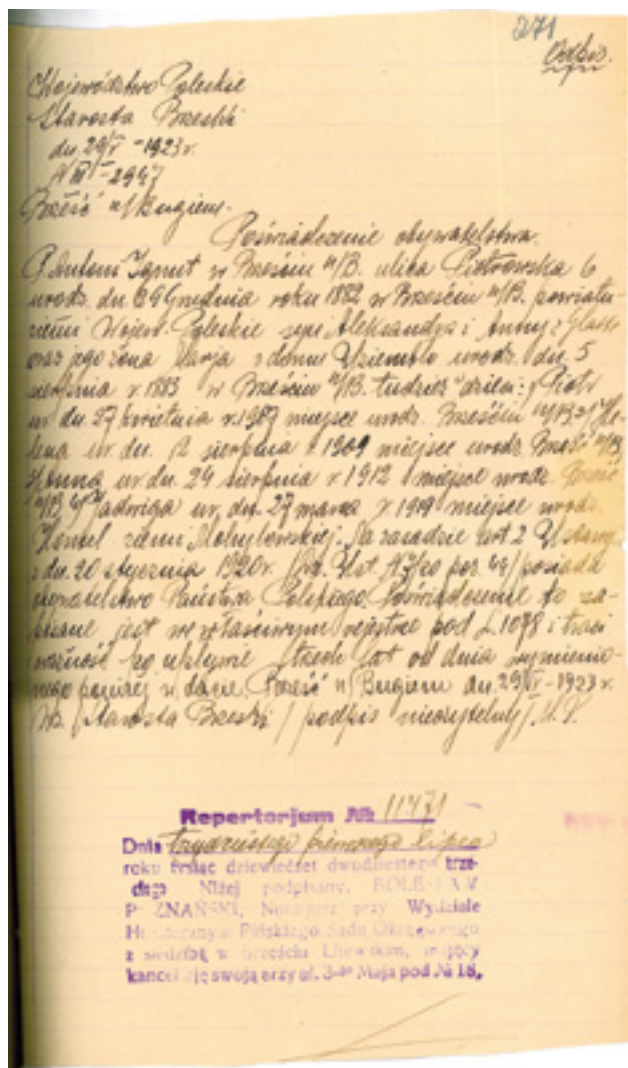 271
Odpis.
Województwo Poleskie
Starosta Brzeski
dn. 29/V - 1923 r.
N III - 2947
Brześć n/Bugiem.
Poświadczenie obywatelstwa.
P. Antoni w Brześciu n/B. ulica Piotrowska 6
urodz. dn. Grudnia roku 1882 w Brześciu n/B. powiatu
ziemi Wojew. Poleskie syn Aleksandra i Anny z
oraz jego żona Marja z domu urodz. dn. 5
sierpnia r. 1883 w Brześciu n/B. tudzież dzieci: 1/ Piotr
ur. dn. 27 kwietnia r. 1907 miejsce urodz. Brześciu n/B. 2/ He-
lena ur. dn. 12 sierpnia r. 1909 miejsce urodz. Brześć n/B.
ur. dn. 24 sierpnia r. 1912 miejsce urodz. Brześć
n/B 4/ Jadwiga ur. dn. 27 marca r. 1919 miejsce urodz.
Homel ziemi Mohylowskiej. Na zasadzie art. 2 Ustawy
z dn. 20 stycznia 1920 r. Ust. N 7/20 poz. 44/ posiada
obywatelstwo Państwa Polskiego. Poświadczenie to za-
pisane jest we właściwym rejestrze pod L. 1078 i traci
ważność po upływie trzech lat od dnia wymienio-
nego poniżej w dacie. Brześć n/Bugiem dn. 29/V - 1923 r.
Starosta Brzeski / podpis nieczytelny /.
Repertorjum № 11471
Dnia trzydziestego pierwszego lipca
roku tysiąc dziewięćset dwudziestego trze-
ciego Niżej podpisany, BOLESŁAW
POZNAŃSKI, Notarjusz przy Wydziale
Hipotecznym Pińskiego Sądu Okręgowego
z siedzibą w Brześciu Litewskim, mający
kancelarję swoją przy ul. 3-go Maja pod № 18,